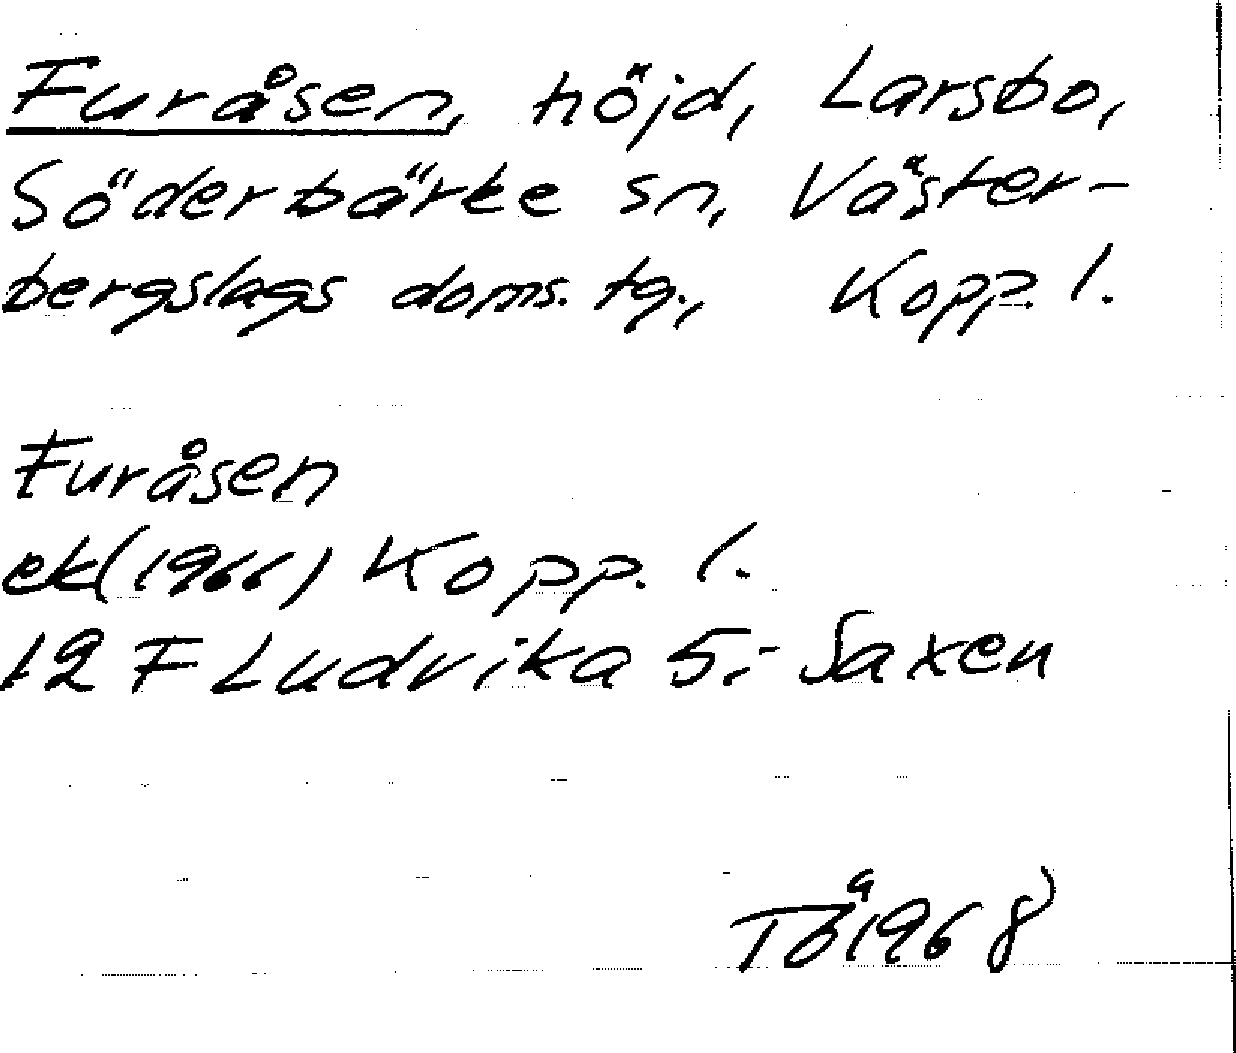 Furåsen, höjd, Larsbo,
Söderbärke sn, Väster-
bergslags doms. tg., Kopp. l.
Furåsen
ek(1966) Kopp. l.
12 F Ludvika 5:- Saxen
1968